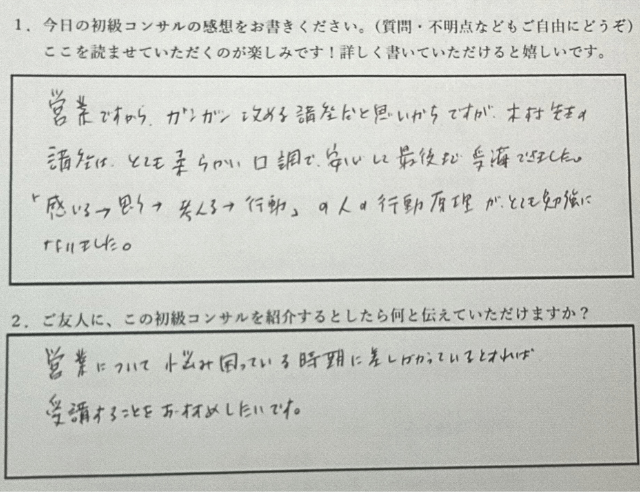 1．今日の初級コンサルの感想をお書きください。（質問・不明点などもご自由にどうぞ）
ここを読ませていただくのが楽しみです！詳しく書いていただけると嬉しいです。
営業ですから、ガンガン攻める講座だと思いがちですが、木村先生の
講座は、とても柔らかい口調で、安心して最後まで受講できました。
「感じる→思う→考える→行動」の人の行動原理が、とても勉強に
なりました。
2．ご友人に、この初級コンサルを紹介するとしたら何と伝えていただけますか？
営業について悩み困っている時期に差しかかっているとすれば
受講することをおすすめしたいです。